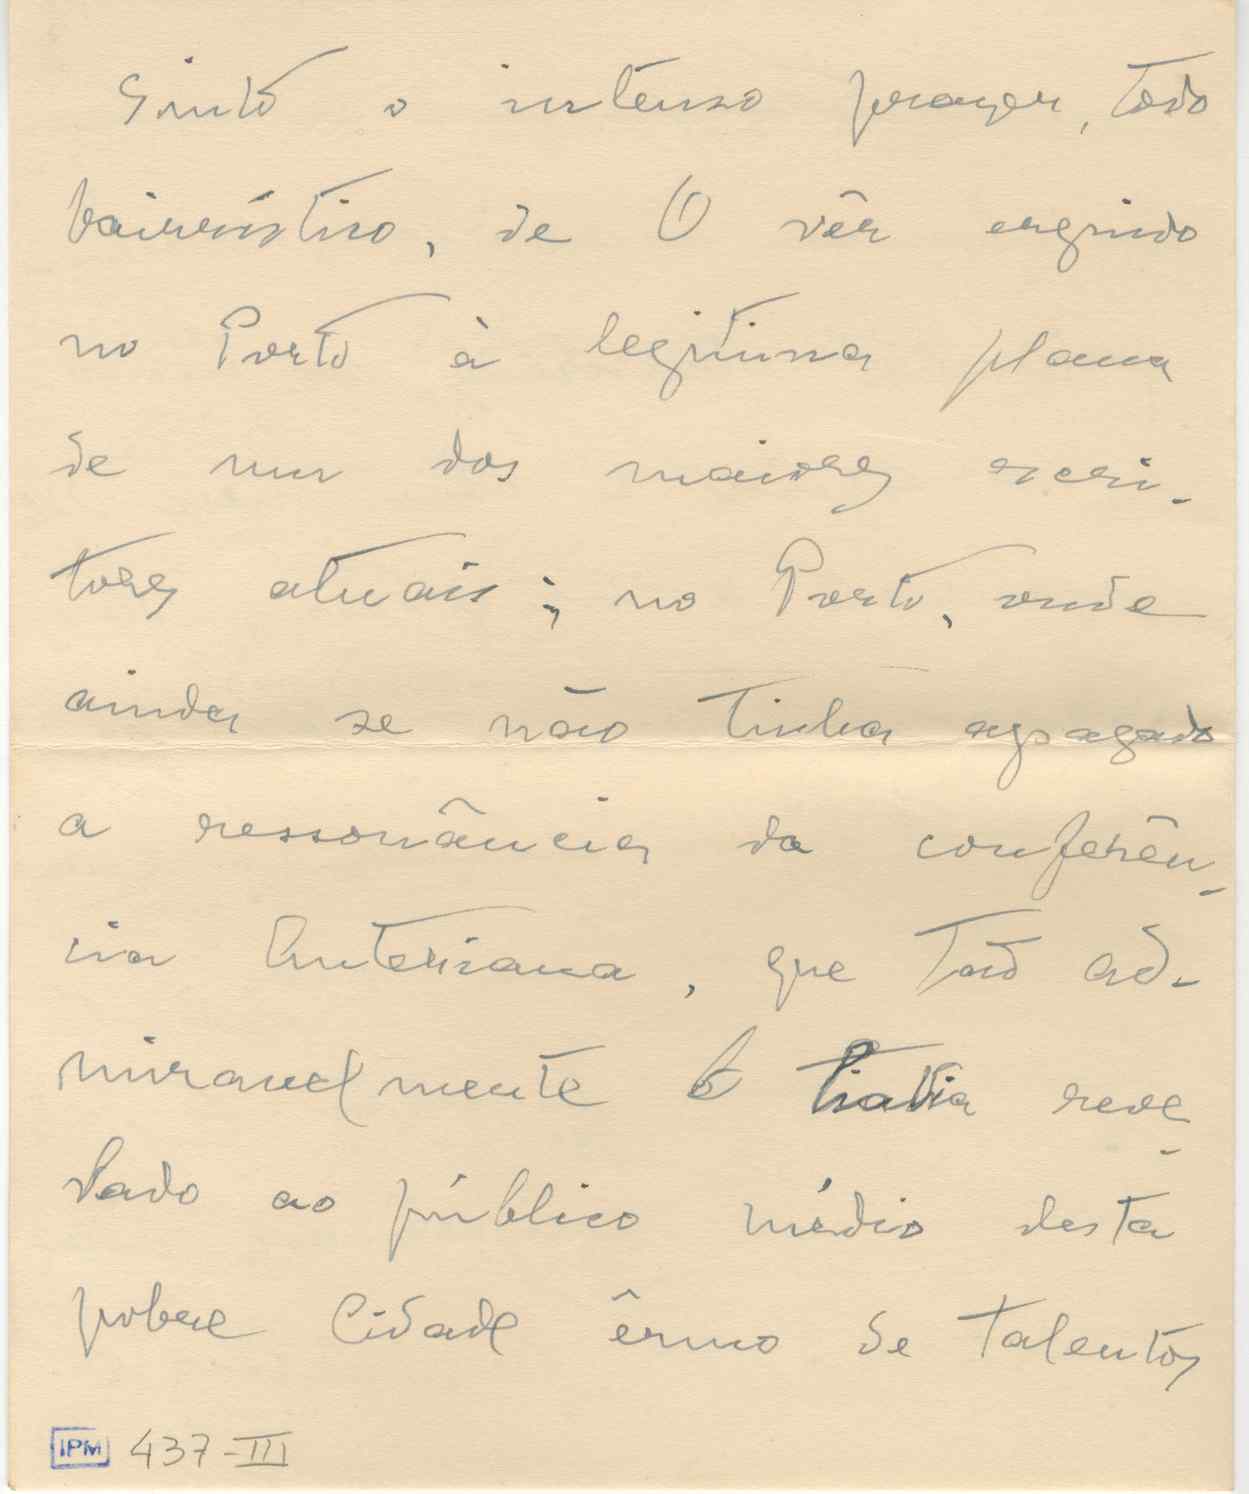 Sinto o intenso prazer, todo
bairrístico, de O vêr erguido
no Porto à legítima plana
de um dos maiores escri-
tores atuais; no Porto, onde
ainda se não tinha apagado
a ressonância da conferên-
cia Anteriana, que tão ad-
miravelmente O havia reve-
lado ao público médio desta
pobre Cidade êrmo de talentos
IPM 437-III